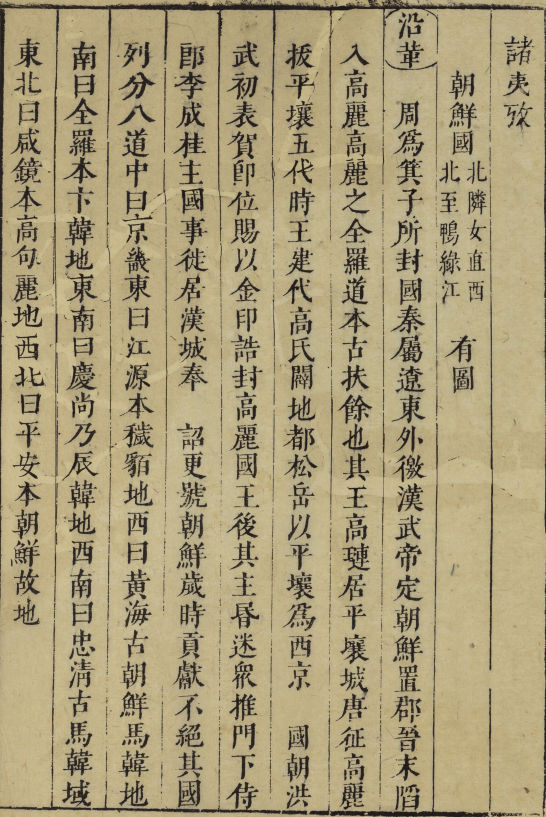 諸夷攷
朝鮮國 北隣女直西北至鴨綠江 有圖
沿革 周爲箕子所封國秦屬遼東外徼漢武帝定朝鮮置郡晉末䧟
入高麗高麗之全羅道本古扶餘也其王高璉居平壤城唐征高麗
拔平壤五代時王建代高氏闢地都松岳以平壤爲西京 國朝洪
武初表賀即位賜以金印誥封高麗國王後其主昏迷衆推門下侍
郎李成桂主國事徙居漢城奉 詔更號朝鮮歲時貢獻不絕其國
列分八道中曰京畿東曰江源本穢貊地西曰黃海古朝鮮馬韓地
南曰全羅本卞韓地東南曰慶尚乃辰韓地西南曰忠淸古馬韓域
東北曰咸鏡本高句麗地西北曰平安本朝鮮故地